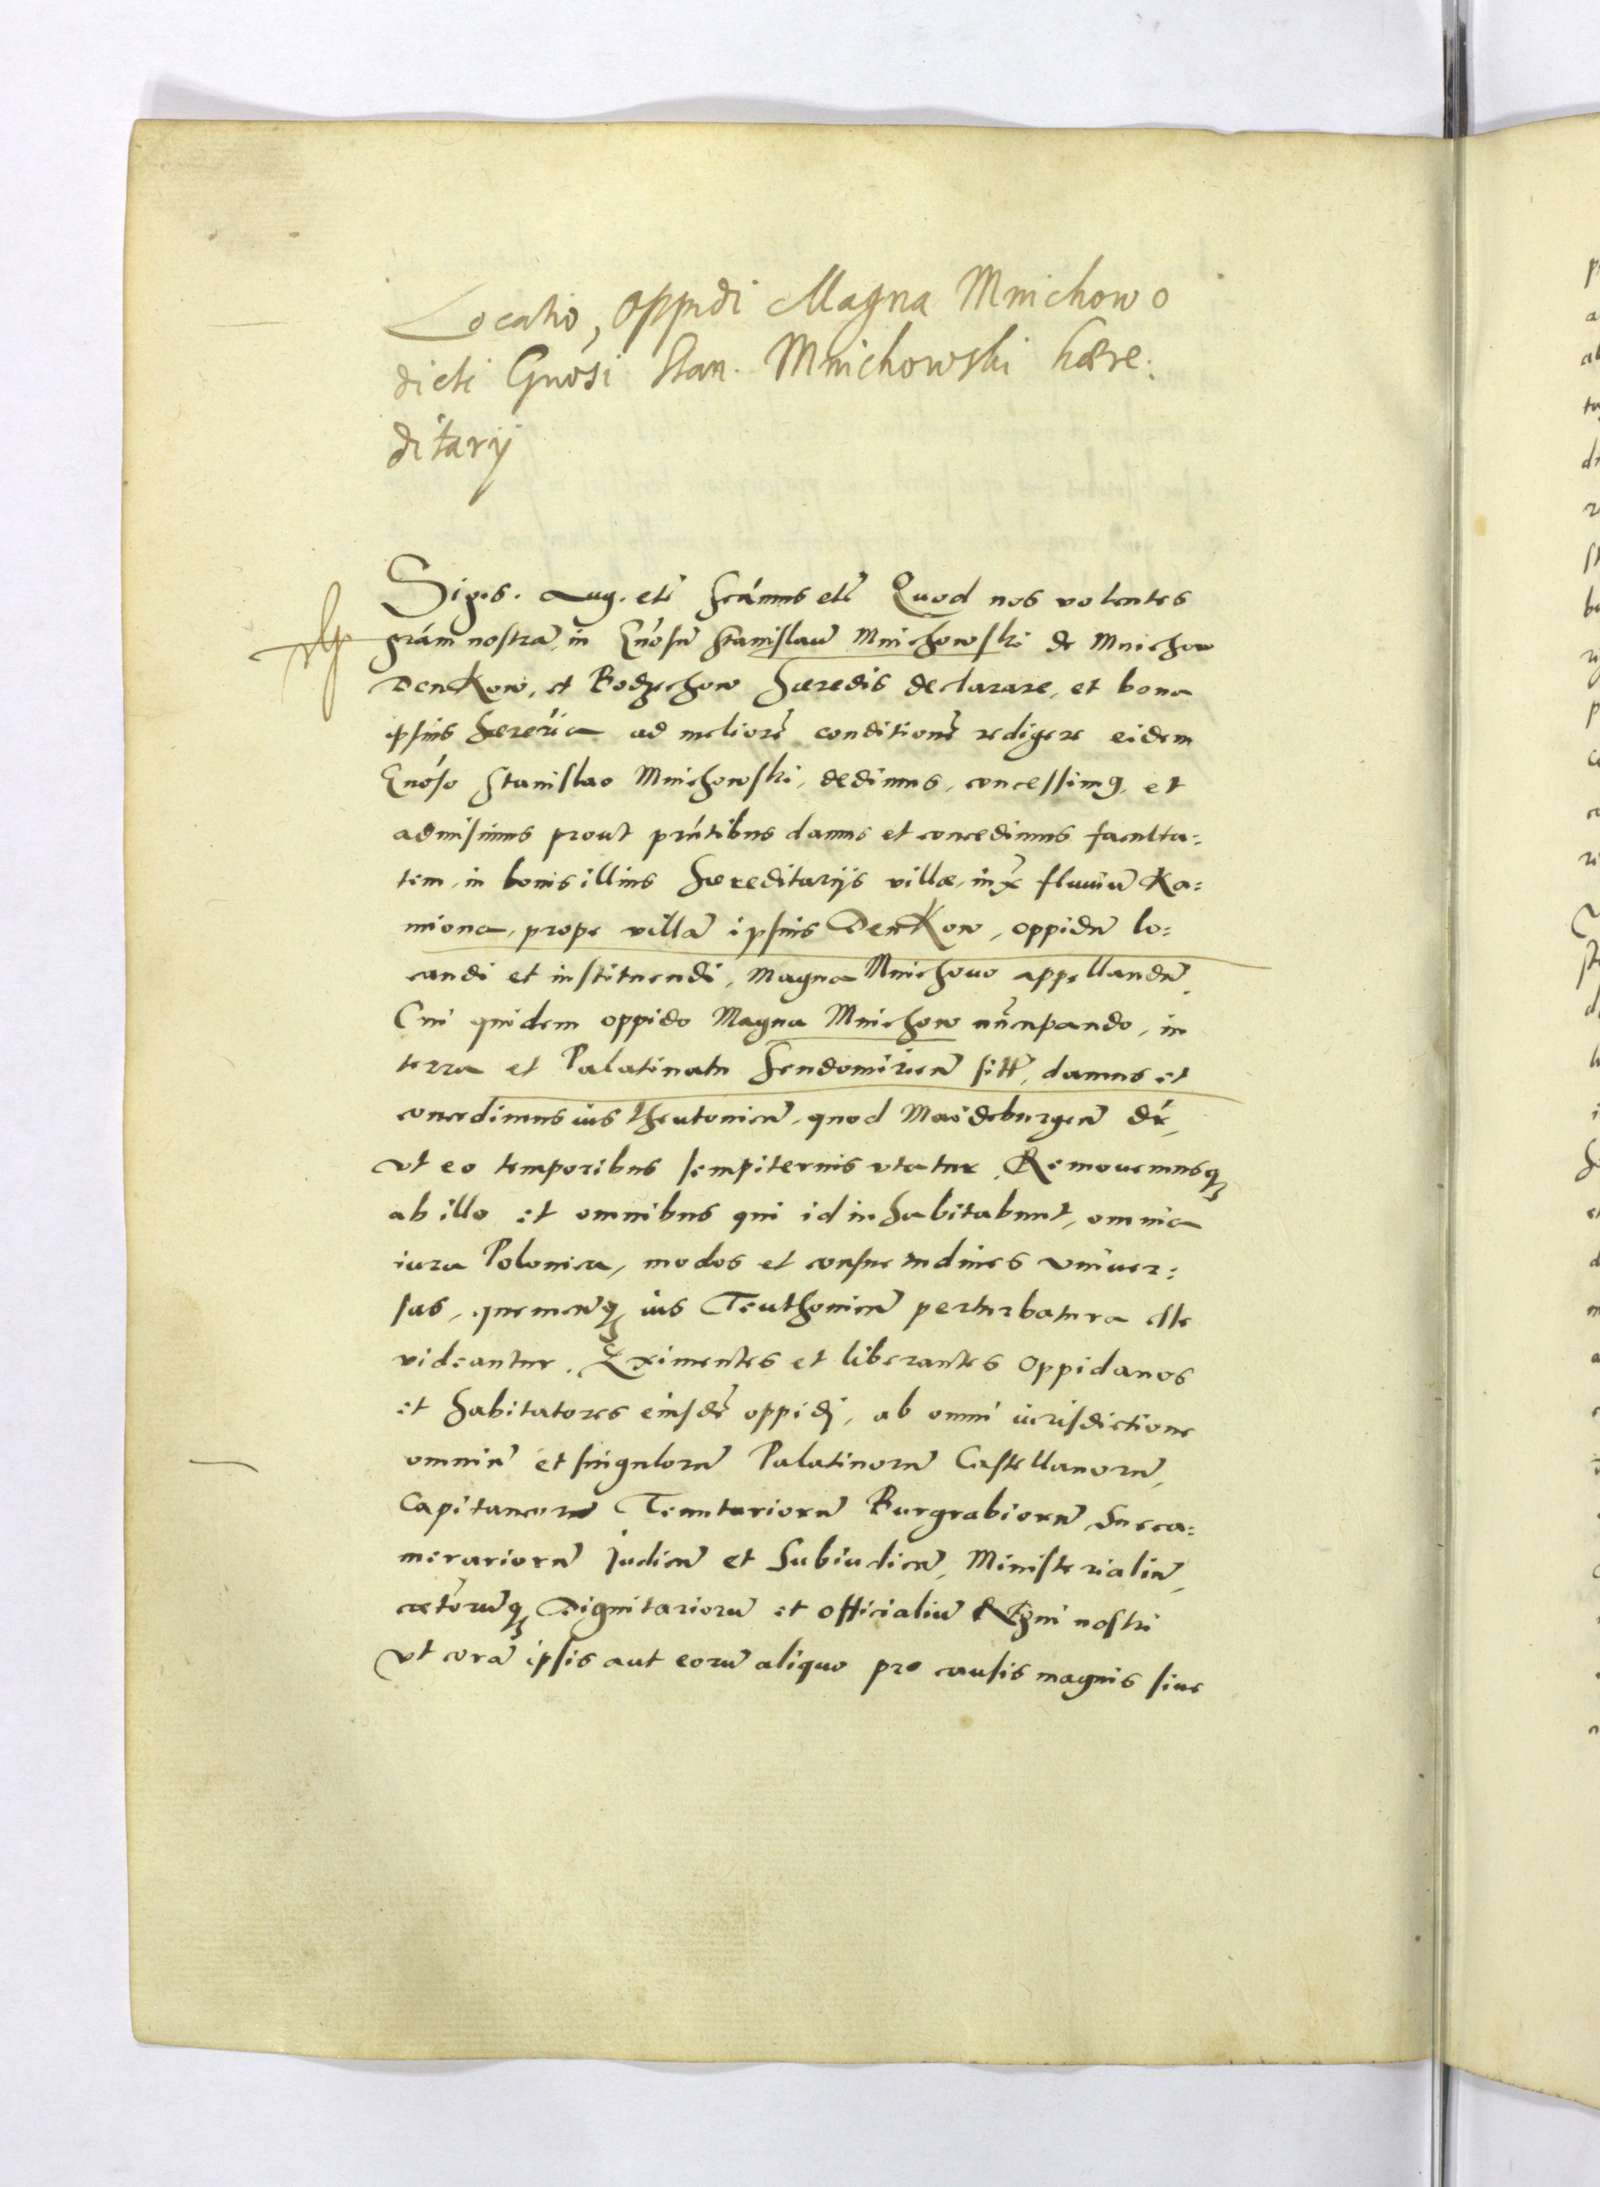 Locatio, oppidi Magna Mnichow o
dicti Gnosi Stan. Mnichowski hære:
ditarij
Sigis. Aug. etc̃ Scimus etc̃ Quod nos volentes
gram̃ nostrã, in Gnosũ Stanislaũ Mnichowski de Mnichow
Denkow, et Bodzechow hæredis declarare, et bona
ipsius hæreria ad meliorẽ conditionẽ redigere eidem
Gnoso Stanislao Mnichowski, dedimus, concessimꝰ, et
admisimus prout pñtibus damus et concedimus faculta:
tem, in bonis illius hæreditarijs villæ, inx̃ fluuiũ Ka:
miona, prope villã ipsius Denkow, oppidũ lo:
candi et instituendi, Magna Mnichouo appellandũ.
Cui quidem oppido Magna Mnichow nũcupando, in
terra et Palatinatu Sendomirien̄ sitt̃, damus et
concedimus ius theutonicũ, quod Maideburgen̄ dr̃,
vt eo temporibus sempiternis vtatur. Remouemusqꝫ
ab illo et omnibus qui id inhabitabunt, omnia
iura Polonica, modos et consuetudines vniuer:
sas, quæcunqꝫ ius Teuthonicũ perturbatura esse
videantur. Eximentes et liberantes oppidanos
et habitatores eiusdẽ oppidj, ab omni iurisdictione
omniũ et singulorũ Palatinorũ Castellanorũ,
Capitaneorũ Tenutariorũ Burgrabiorũ Succa:
merariorũ Judicũ et Subiudicũ, Ministerialiũ,
cæterorũqꝫ Dignitariorũ et officialiũ Regni nostri
vt corã ipsis aut eorũ aliquo pro causis magnis siue